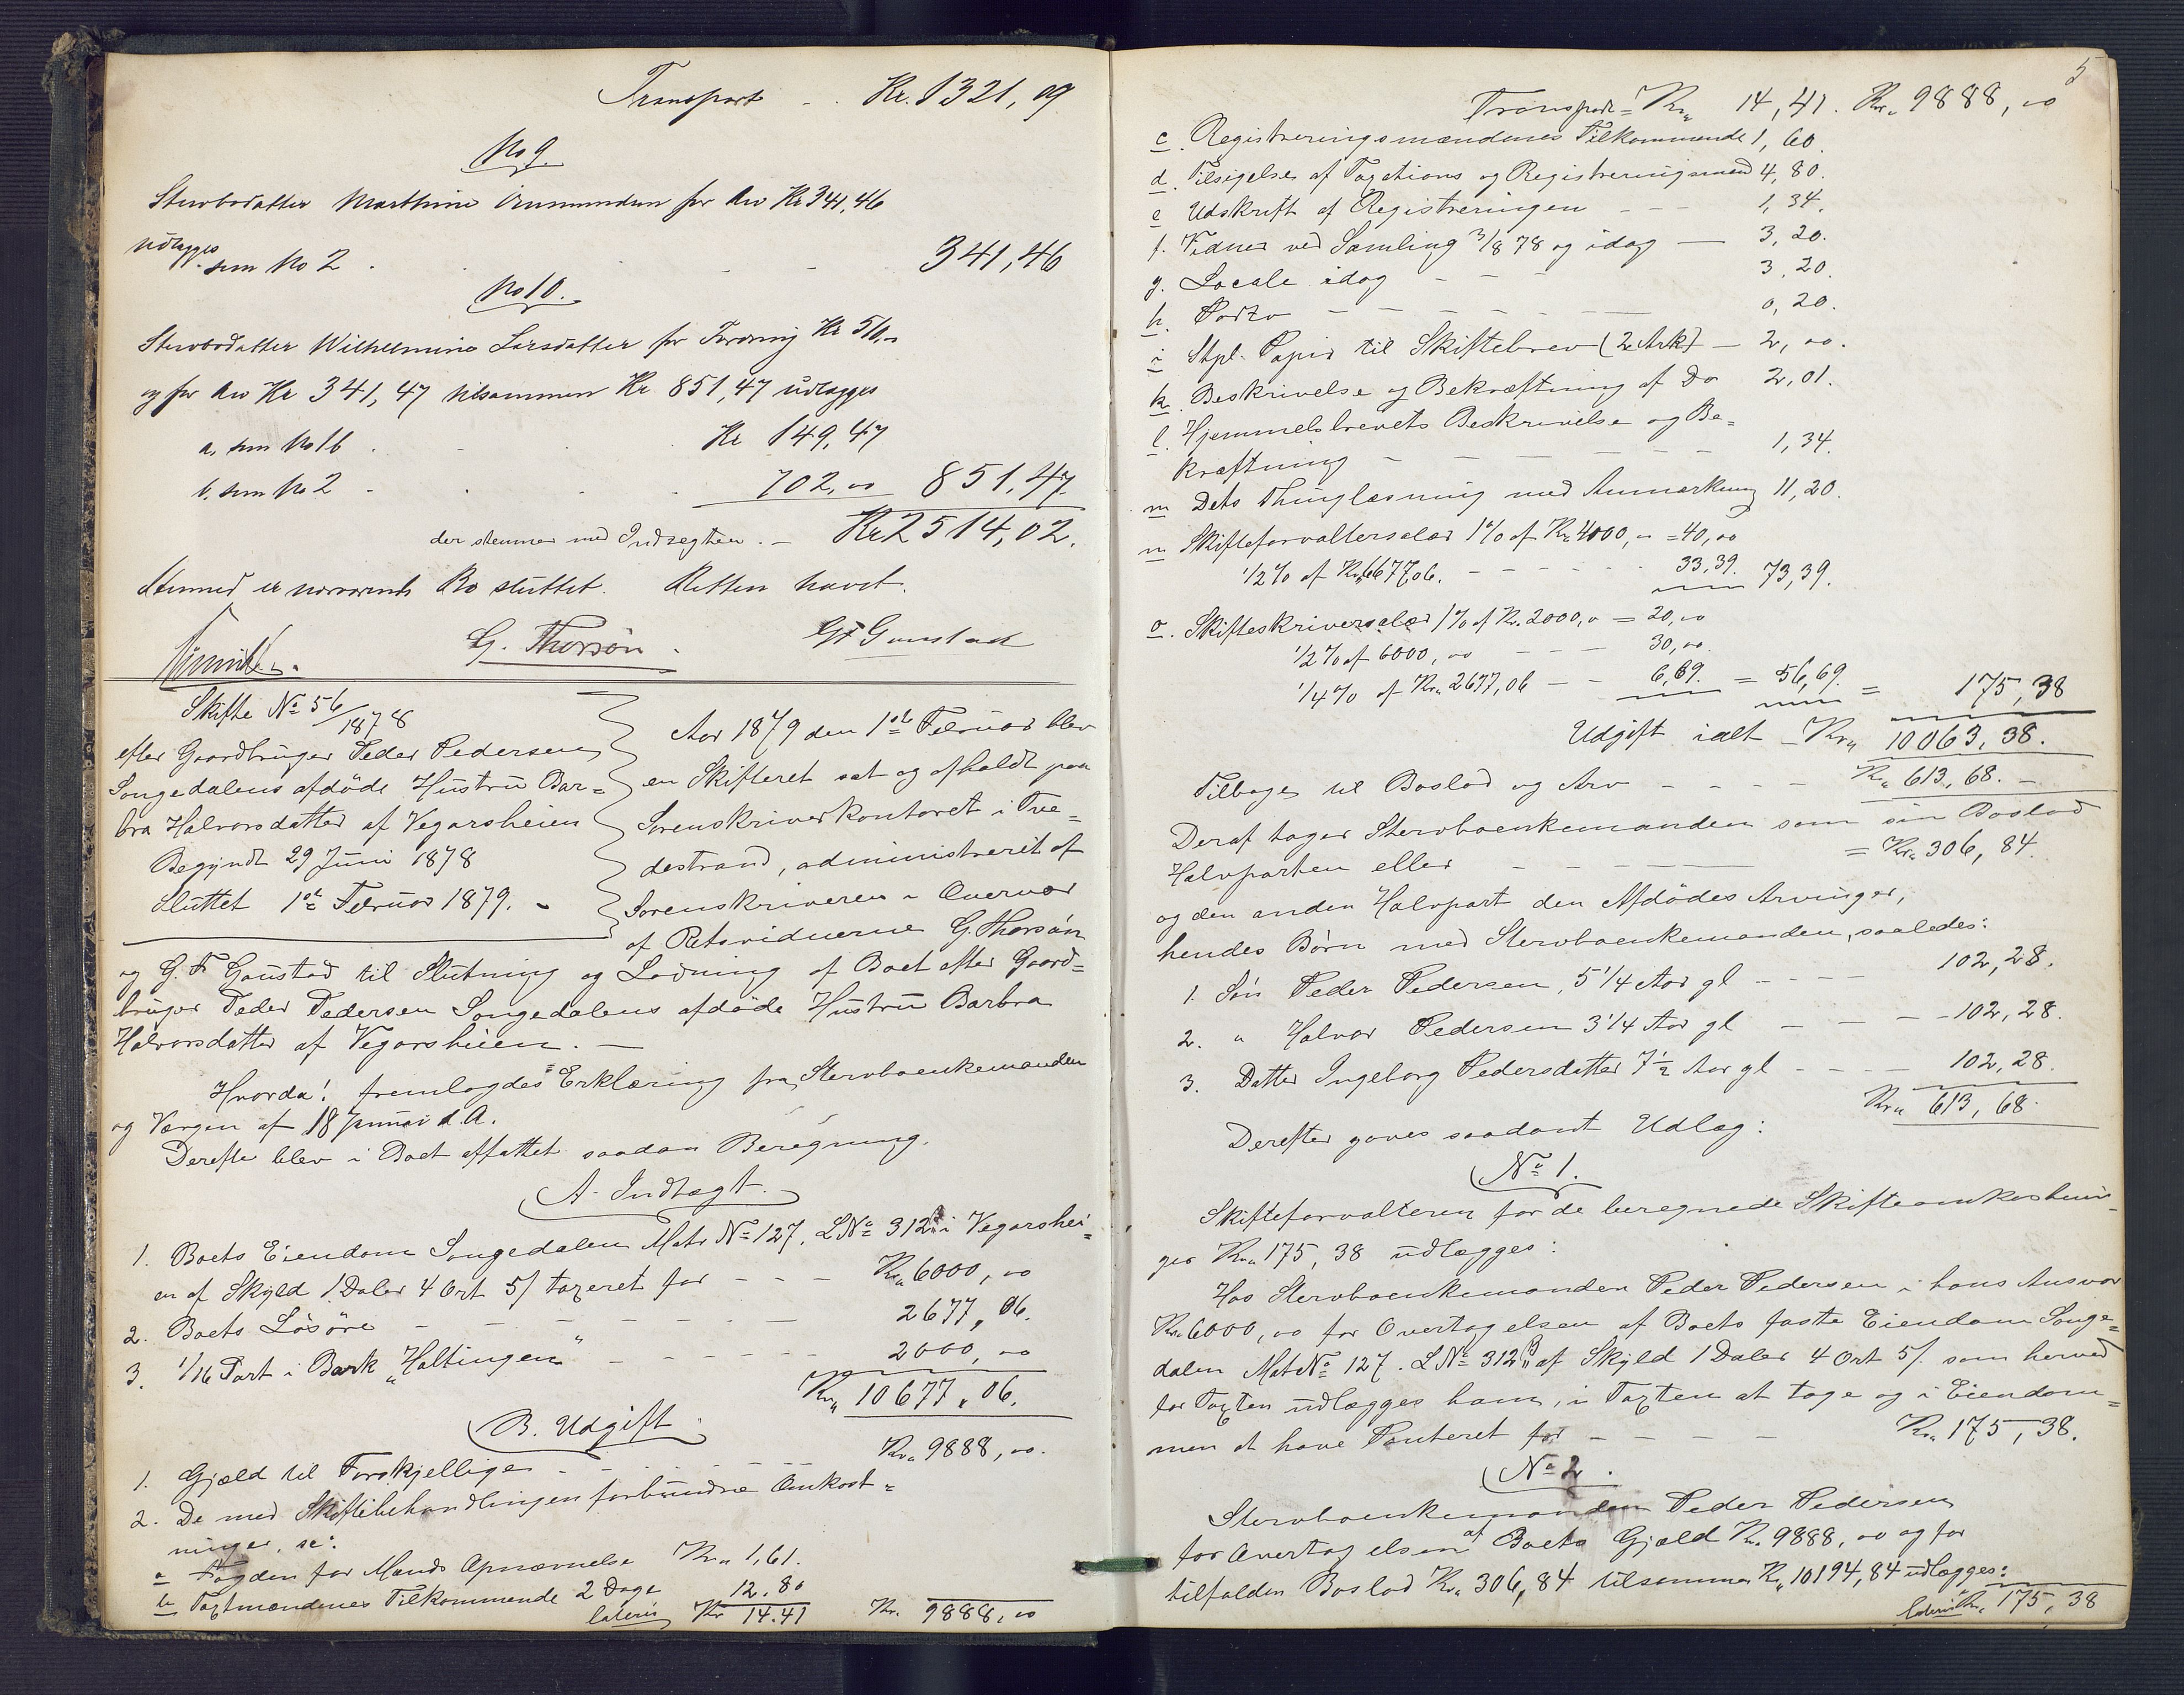 Transport - . Kr. 1321,09
No 9
Stervbodatter Marthine Gunmundsen for Arv Kr 341,46
udlægges
sem No 2 . - - - 341,46
No 10.
Stervbodatter Wilhelmine Larsdatter for Fordring Kr 510,-
og for Arv Kr 341,47 tilsammen Kr 851,47 udlægges
a, sem No 1b . - . Kr 149,47
b, sem No 2 - . . . 702,00 851,47
der stemmer med Indtægten. - Kr 2514,02.
Hermed er nærværende Bo sluttet. Retten hævet.
G. Thorsøn. G F Gaustad
Skifte No 56/1878
efter Gaardbruger Peder Pedersen
Songedalens afdöde Hustru Bar=
bra Halvorsdatter af Vegarsheien
Begyndt 29 Juni 1878
Sluttet 1ste Februar 1879. -
Aar 1879 den 1ste Februar blev
en Skifteret sat og afholdt paa
Sorenskriverkontoret i Tve=
destrand, administreret af
Sorenskriveren i Overvær
af Retsvidnerne G. Thorsön
og G. F Gaustad til Slutning og Lodning af Boet efter Gaard=
bruger Peder Pedersen Songedalens afdöde Hustru Barbra
Halvorsdatter af Vegarsheien. -
Hvorda! fremlagdes Erklæring fra Stervboenkemanden
og Værgen af 18 Januar d. A.
Derefter blev i Boet affattet saadan Beregning.
A. Indtægt.
1. Boets Eiendom Songedalen Matr No 127. L No 312 i Vegarshei=
en af Skyld 1 Daler 4 Ort 5 / taxeret for - - - Kr. 6000,00
2. Boets Lösöre - - - - - - 2677,06.
3. 1/16 Part i Bark "Haltingen" - - - - - - 2000,00
Kr. 10677,06.
B. Udgift.
1. Gjæld til Forskjellige - - - - - Kr. 9888,00.
2. De med Skiftebehandlingen forbundne Omkost=
ninger, se:
a Fogden for Mænds Opnævnelse Kr. 1,61.
b Taxtmændenes Tilkommende 2 Dage 12.80
lateris Kr 14.41 Kr. 9888,00
5
Transport = Kr. 14,41. Kr. 9888,00
c. Registreringsmændenes Tilkommende 1,60.
d. Tilsigelse af Taxations og Registreringsmænd 4,80.
e Udskrift af Registreringen - - - 1,34.
f. Vidner ved Samling 3/8 78 og idag - 3,20.
g. Locale idag - - - 3,20.
h. Porto - - - - - - - 0,20.
i Stpl. Papir til Skiftebrev (2 Ark) - 2,00.
k. Beskrivelse og Bekræftning af Do 2,01.
l. Hjemmelsbrevets Beskrivelse og Be=
kræftning - - - - - - - 1,34.
m Dets Thinglæsning med Anmærkning 11,20.
n Skifteforvaltersalær 1% af Kr. 4000,- = 40,00
1/2% af Kr. 6677,06. - - - - - 33,39. 73,39.
o. Skifteskriversalær 1% af Kr. 2000,0 = 20,00
1/2% af 6000,00 - - - 30,00.
1/4% af Kr. 2677,06 - - 6,69. = 56,69. = 175,38
Udgift ialt - Kr. 10063,38.
Tilbage til Boslod og Arv - - - - Kr. 613,68. -
Deraf tager Stervboenkemanden som sin Boslod
Halvparten eller - - - = Kr. 306,84.
og den anden Halvpart den Afdödes Arvinger,
hendes Börn med Stervboenkemanden, saaledes:
1. Sön Peder Pedersen, 5 1/4 Aar gl - - - 102,28.
2. " Halvor Pedersen 3 1/4 Aar gl - - - - 102,28.
3. Datter Ingeborg Pedersdatter 7 1/2 Aar gl - - - - 102,28.
Kr. 613,68.
Derefter gaves saadant Udlæg:
No 1.
Skifteforvalteren for de beregnede Skifteomkostnin-
ger Kr. 175,38 udlægges:
Hos Stervboenkemanden Peder Pedersen i hans Ansvar
Kr. 6000,00 for Overtagelsen af Boets faste Eiendom Songe=
dalen Mat No 127. L No 312 af Skyld 1 Daler 4 Ort 5 / som herved
for Taxten udlægges ham, i Taxten at tage og i Eiendom=
men at have Panteret for - - - - Kr. 175,38.
No 2.
Stervboenkemanden Peder Pedersen
for Overtagelsen af Boets Gjæld Kr. 9888,00 og for
tilfalden Boslod Kr. 306,84 tilsammen Kr. 10194,84 udlægges:
lateris Kr. 175,38